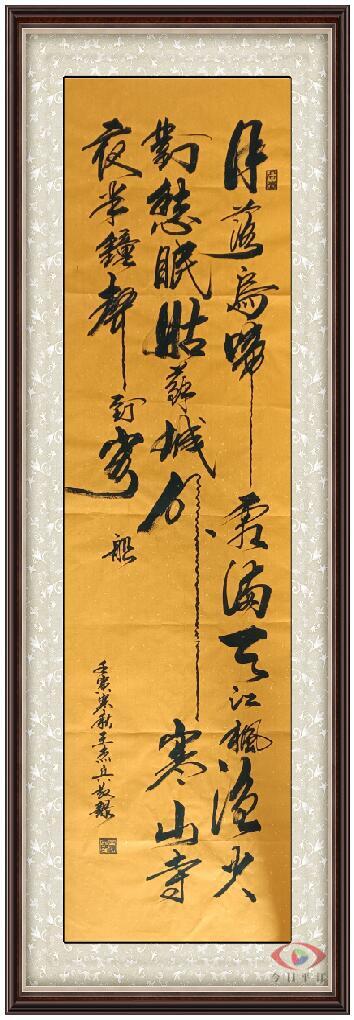 月落烏啼霜滿天江楓漁火
對愁眠姑蘇城外寒山寺
夜半鐘聲到客船
壬寅
今日平江